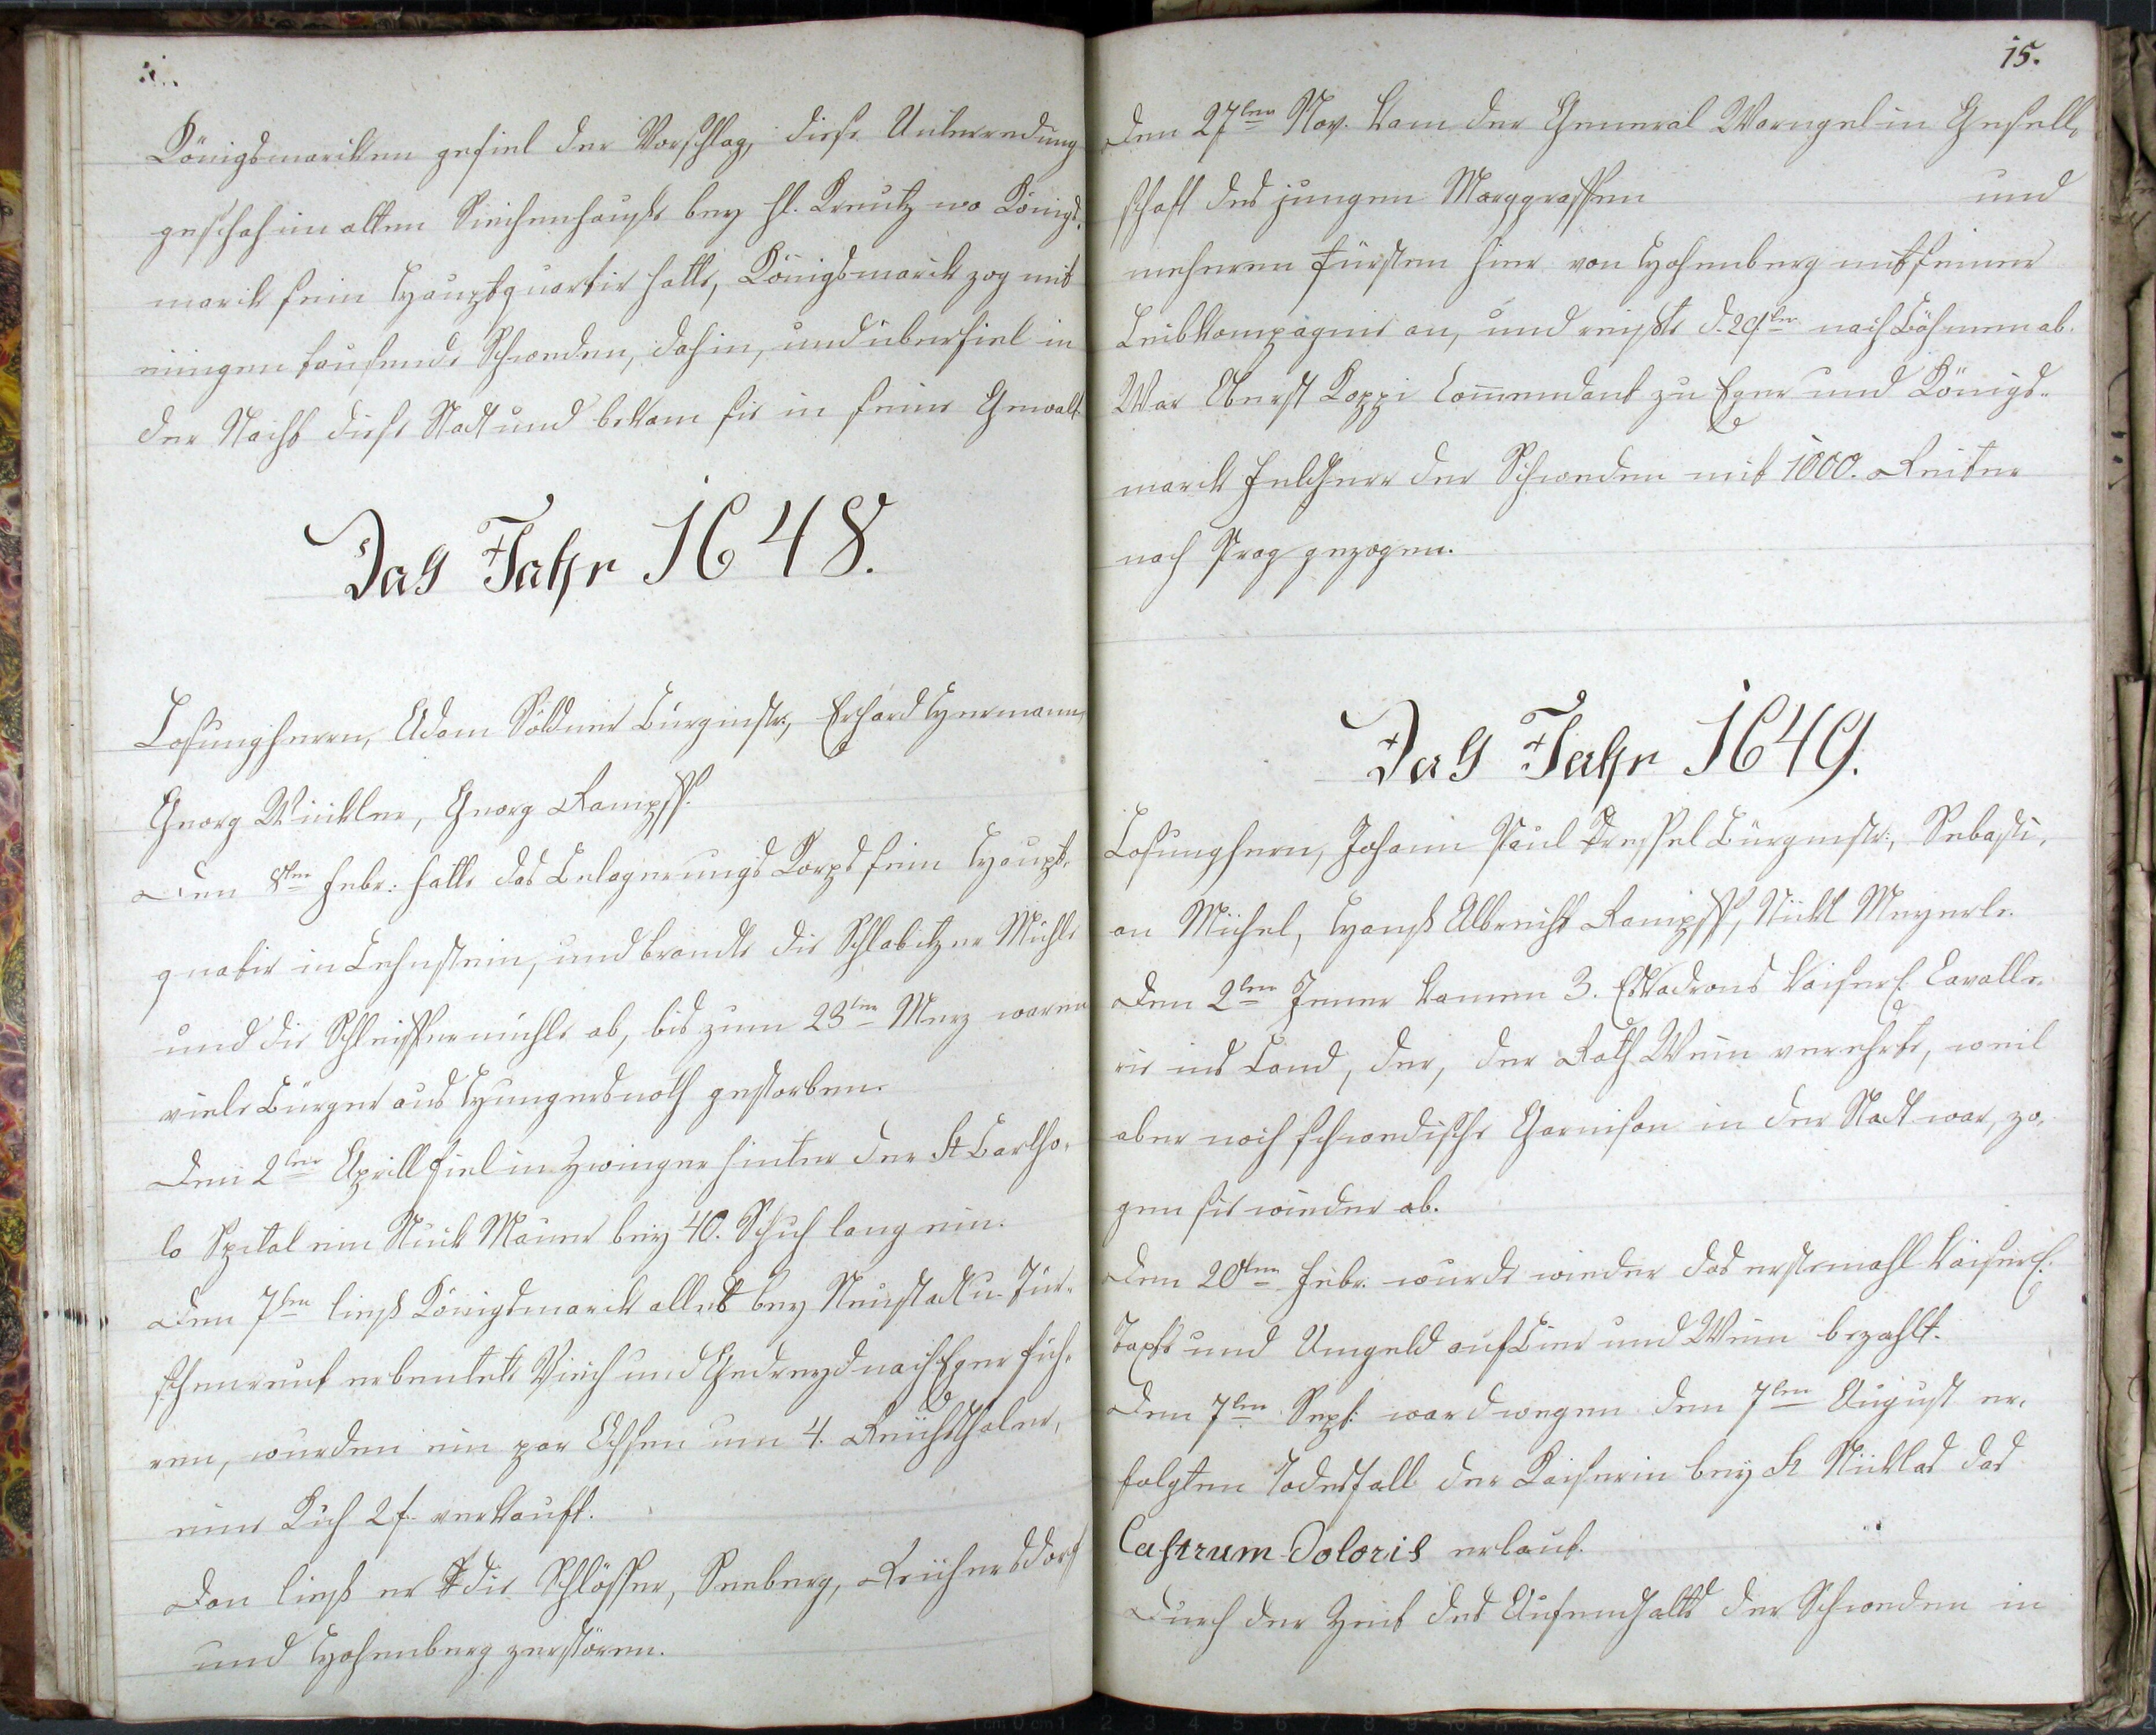 Königsmarkten gefiel der Vorschlag, diese Unterredung
geschah im alten Siechenhauße bey hl. Kreutz wo Königs,
mark sein Hauptquartir hatte, Königsmark zog mit
einigen tausende Schweden, dahin, und überfiel in
der Nacht diese Stadt und bekam sie in seine Gewalt
Das Jahr 1648.
Losungherrn, Adam Söldner Bürgmstr:, Erhard Hermann,
Georg Winkler, Georg Rampff.
Den 8ten Febr: hatte das Belagerungs Korps sein Haupt,
quatir in Lehnstein, und brandte die Schlabitzer Mühle
und die Schleiffermühle ab, bis zum 23ten Merz waren
viele Bürger aus Hungersnoth gestorben.
Den 2ten Aprill fiel im Zwinger hinter der St Bartho,
lo Spital ein Stück Mauer bey 40. Schuh lang ein.
Den 7ten ließ Königsmark alles bey Neustadt u. Tür,
schenreut erbeutete Viech und Gedreyd nach Eger füh,
ren, wurden ein par Ochsen um 4. Reichsthaler,
eine Kuh 2 f. verkauft.
Dan ließ er die Schlösser, Seeberg, Reichersdorf
und Hohenberg zerstören.
15.
Den 27ten Nov. kam der General Wrangel in Gesell,
schaft des jungen Marggraffen und
mehreren Fürsten hier von Hohenberg mit seiner
Leibkompagnie an, und reiste d. 29ten nach Böhmen ab.
War Oberst Koppi Commendant zu Eger und Königs-
mark Feldherr der Schweden mit 1000. Reiter
nach Prag gezogen.
Das Jahr 1649.
Losungherrn, Johann Paul Dressel Bürgmstr:, Sebasti,
an Michel, Hanß Albrecht Rampff, Nickl Meyerle.
Den 2ten Jener kamen 3. Eskadrons Kaiserl. Cavalle,
rie ins Land, der, der Rath Wein verehrte, weil
aber noch schwedische Garnison in der Stadt war, zo,
gen sie wieder ab.
Den 20ten Febr. wurde wieder das erstemahl kaiserl.
Taxe und Umgeld auf Bier und Wein bezahlt.
Den 7ten Sept: ward wegen den 7ten August er,
folgten Todesfall der Kaiserin bey St Nicklas das
Castrum Doloris erbaut.
Durch der Zeit des Aufenthalts der Schweden in